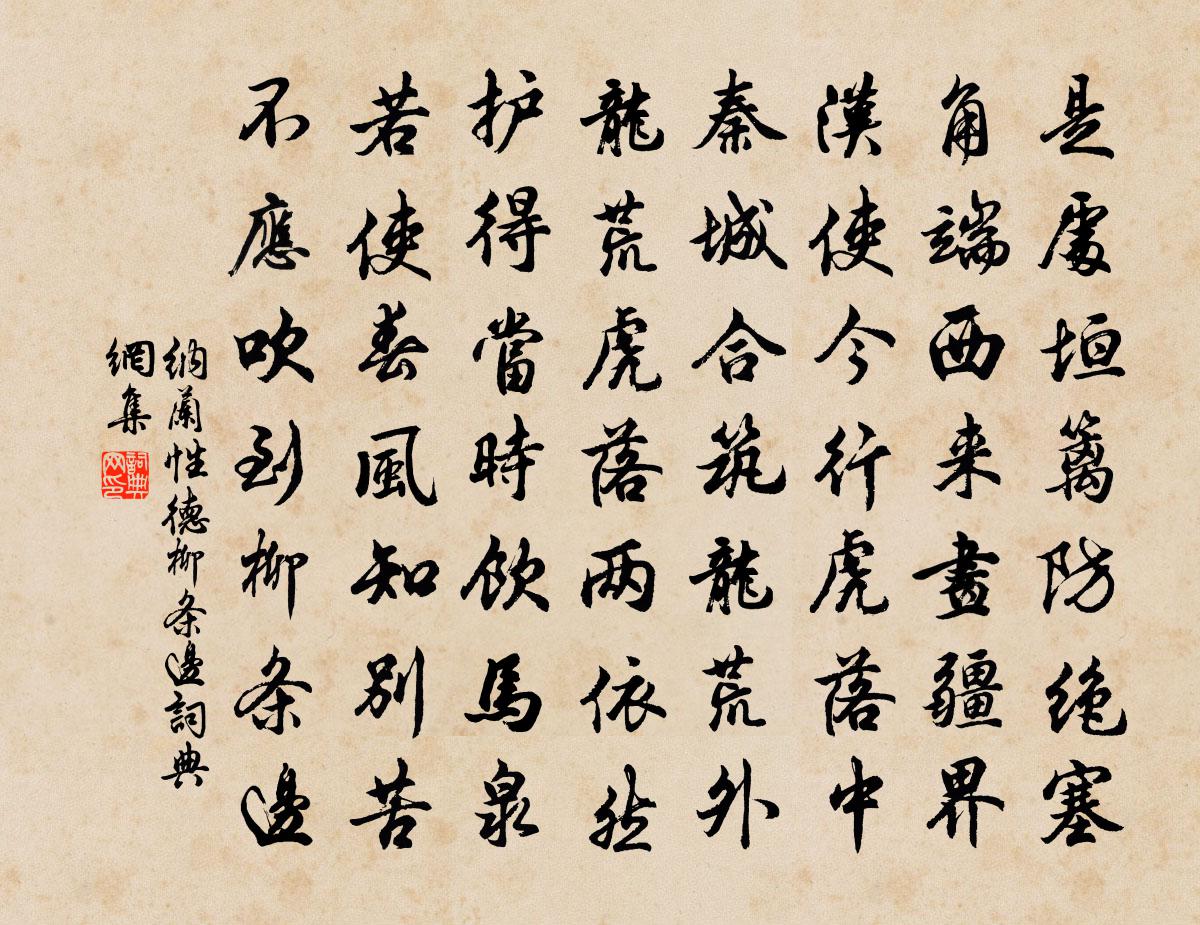 是處垣籬防絶塞
角端西来畫疆界
漢使今行虎落中
秦城合筑龍荒外
龍荒虎落兩依然
护得當時飲馬泉
若使春風知別苦
不應吹到柳条邊
納蘭性德柳条邊詞典
網集
詞典网印